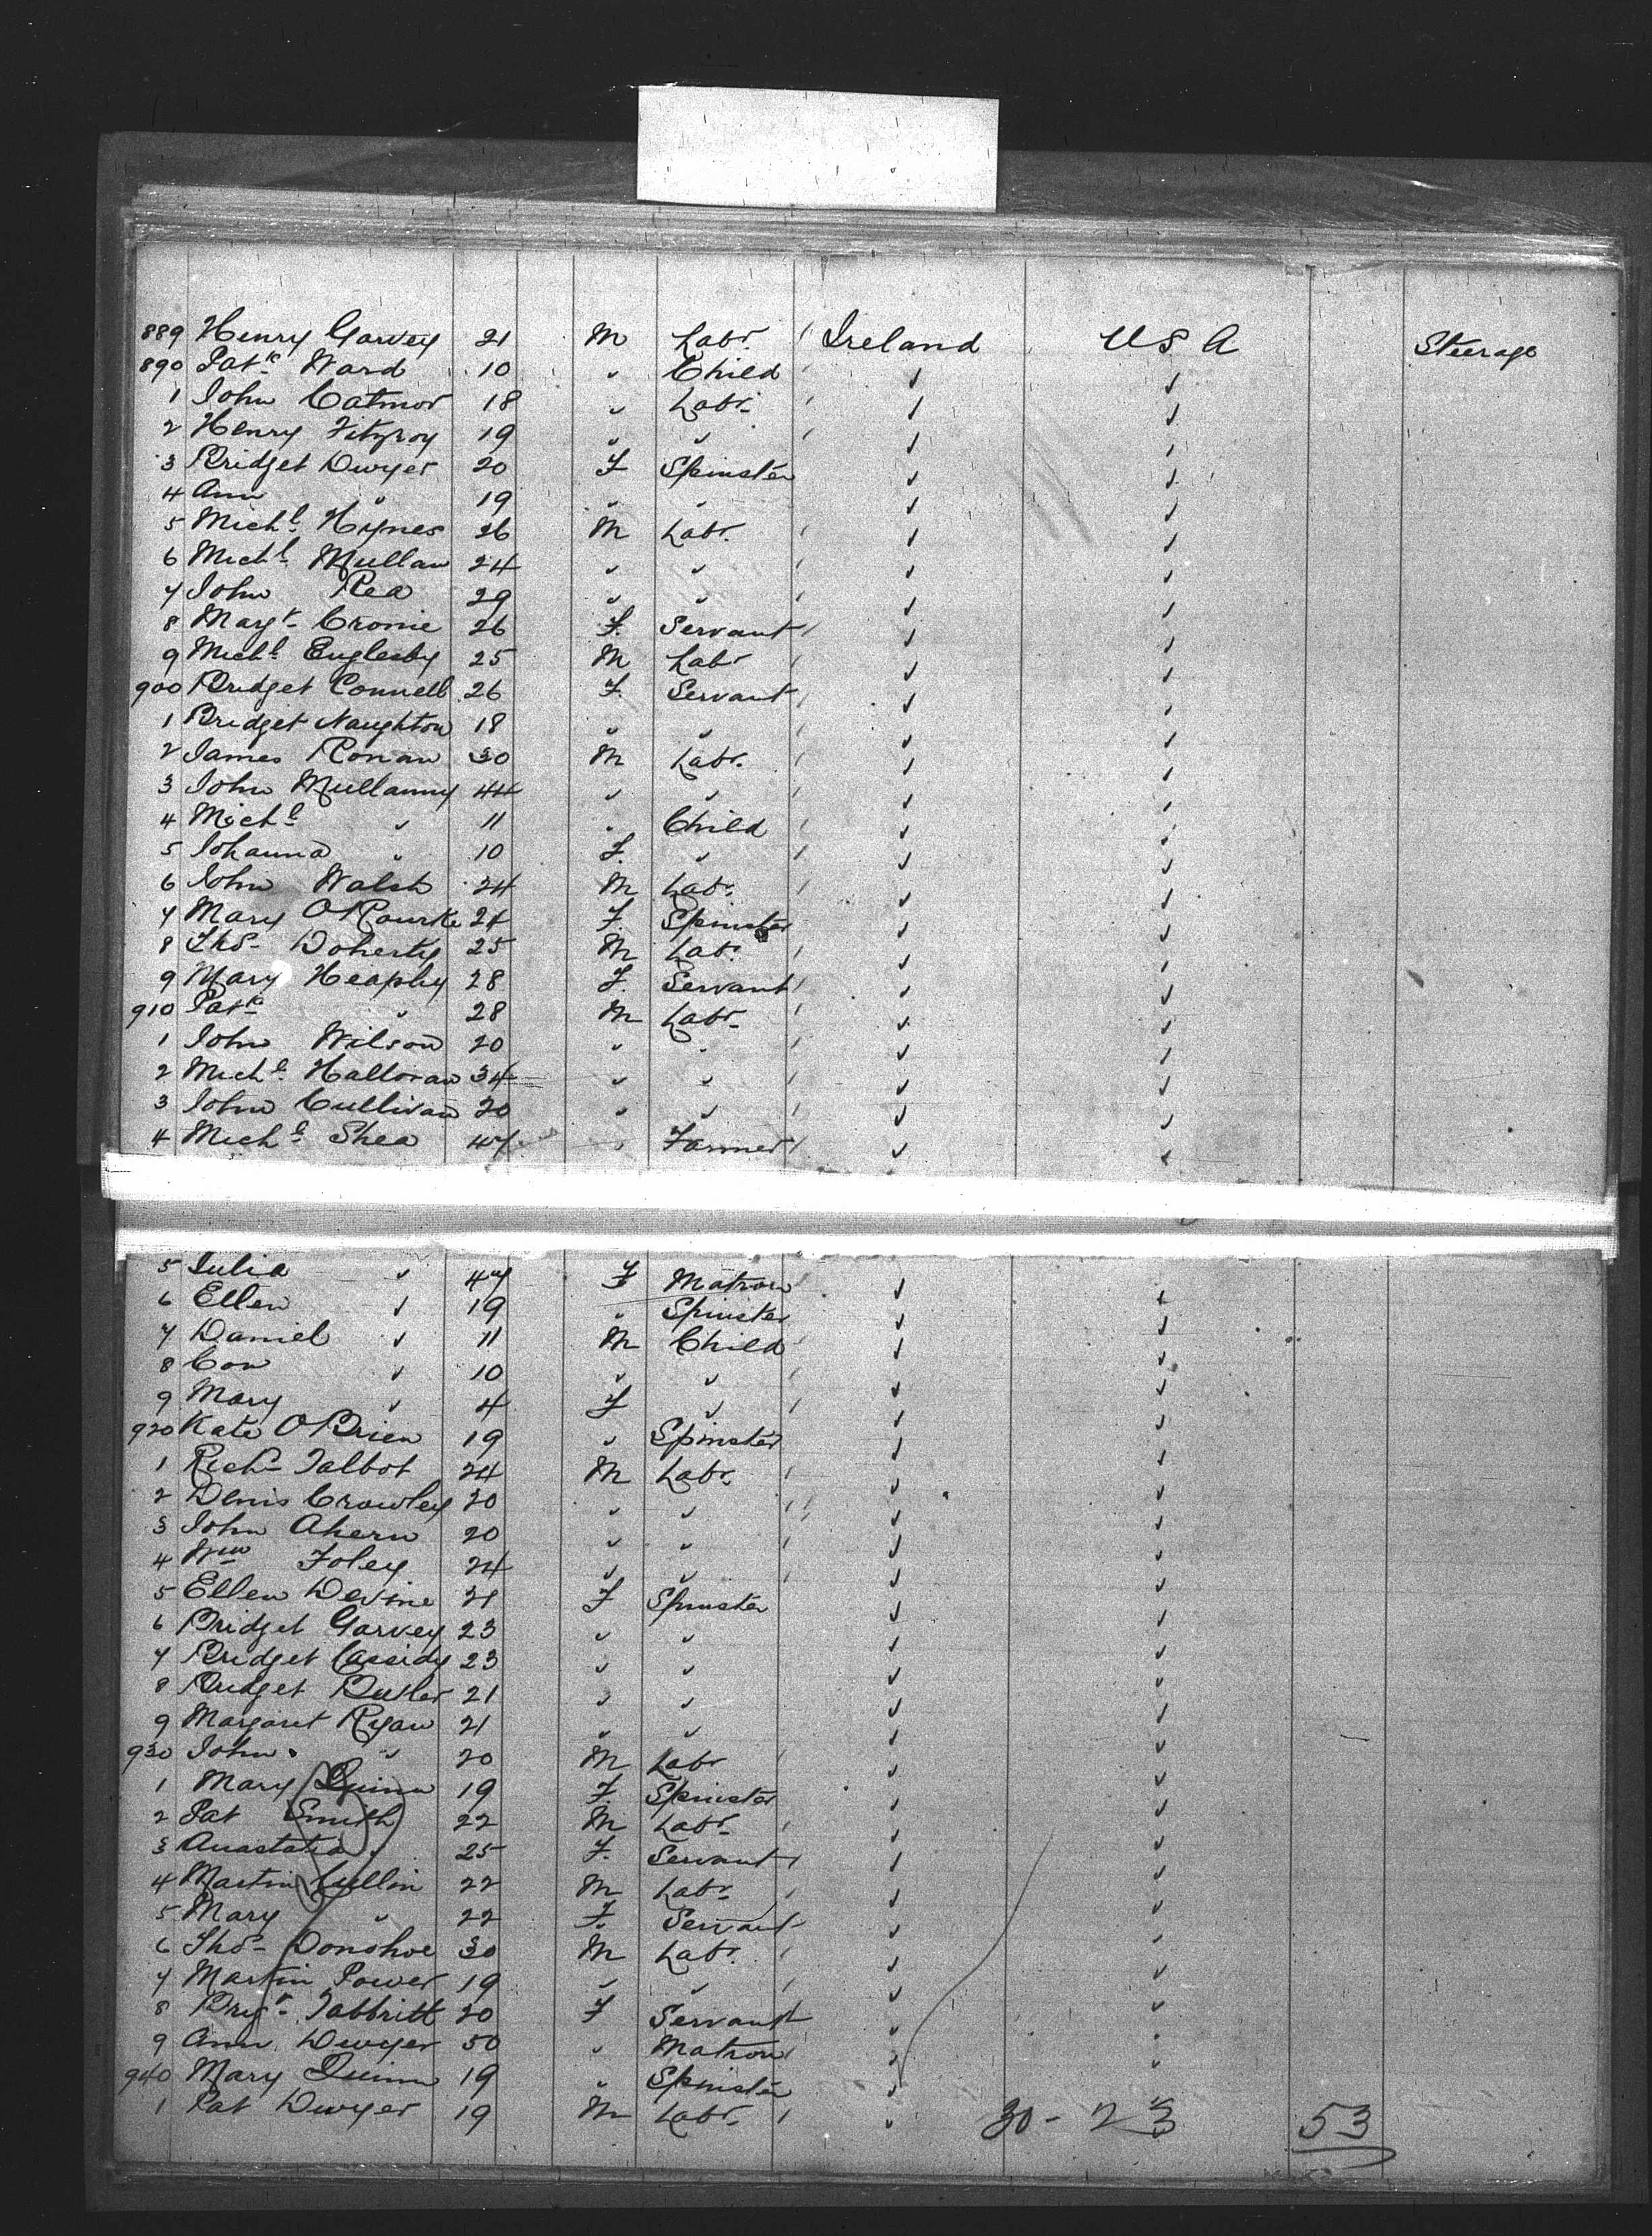 889 Henry Garvey 21 M Labr. Ireland U S A Steerage
890 Patk Ward 10 " Child " "
1 John Catmor 18 " Labr. " "
2 Henry Fitzroy 19 " " " "
3 Bridget Dwyer 20 F Spinster " "
4 Ann " 19 " " " "
5 Michl Hynes 26 M Labr. " "
6 Michl Mullan 24 " " " "
7 John Rea 29 " " " "
8 Margt Cronie 26 F. Servant " "
9 Michl Euglesby 25 M Labr " "
900 Bridget Connell 26 F. Servant " "
1 Bridget Naughton 18 " " " "
2 James Ronan 30 M Labr. " "
3 John Mullanny 44 " " " "
4 Michl " 11 " Child " "
5 Johanna " 10 F. " " "
6 John Walsh 24 M Labr. " "
7 Mary O'Rourke 24 F. Spinster " "
8 Thos Doherty 25 M Labr. " "
9 Mary Heaphy 28 F. Servant " "
910 Patk " 28 M Labr. " "
1 John Wilson 20 " " " "
2 Michl Halloran 34 " " " "
3 John Cullivan 20 " " " "
4 Michl Shea 47 " Farmer " "
5 Julia " 47 F Matron " "
6 Ellen " 19 " Spinster " "
7 Daniel " 11 M Child " "
8 Con " 10 " " " "
9 Mary " 4 F " " "
920 Kate O'Brien 19 " Spinster " "
1 Richd Talbot 24 M Labr. " "
2 Denis Crowley 20 " " " "
3 John Ahern 20 " " " "
4 Wm Foley 24 " " " "
5 Ellen Devine 21 F Spinster " "
6 Bridget Garvey 23 " " " "
7 Bridget Cassidy 23 " " " "
8 Bridget Butler 21 " " " "
9 Margaret Ryan 21 " " " "
930 John " 20 M Labr " "
1 Mary Quinn 19 F. Spinster " "
2 Pat Smith 22 M Labr. " "
3 Anastatia " 25 F. Servant " "
4 Martin Cullin 22 M Labr. " "
5 Mary " 22 F. Servant " "
6 Thos Donohoe 30 M Labr. " "
7 Martin Power 19 " " " "
8 Brigt Tabbritt 20 F Servant " "
9 Ann Dwyer 50 " Matron " "
940 Mary Quinn 19 " Spinster "
1 Pat Dwyer 19 M Labr. " 30 - 23 53